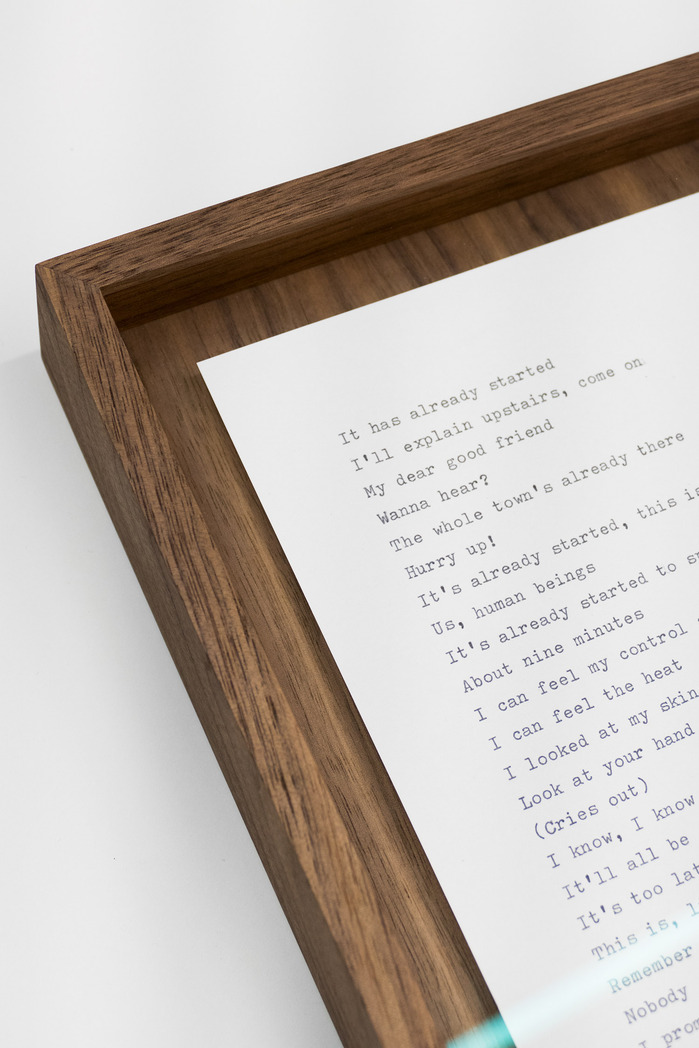 It has already started
I'll explain upstairs, come on
My dear good friend
Wanna hear?
The whole town's already there
Hurry up!
It's already started, this is
Us, human beings
It's already started to
About nine minutes
I can feel my control
I can feel the heat
I looked at my skin
Look at your hand
(Cries out)
I know, I know
It'll all be
It's too
This is,
Remember
Nobody
I